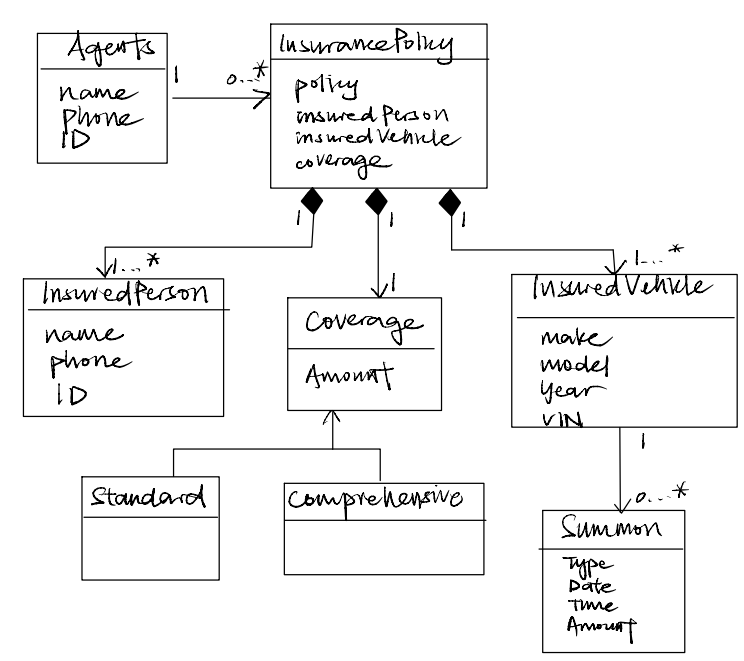 Agents
name
phone
ID
1
0...*
InsurancePolicy
policy
insuredPerson
insuredVehicle
coverage
1
1
1
1...*
InsuredPerson
name
phone
ID
1
Coverage
Amount
1...*
InsuredVehicle
make
model
year
VIN
1
0...*
Standard
Comprehensive
Summon
Type
Date
Time
Amount